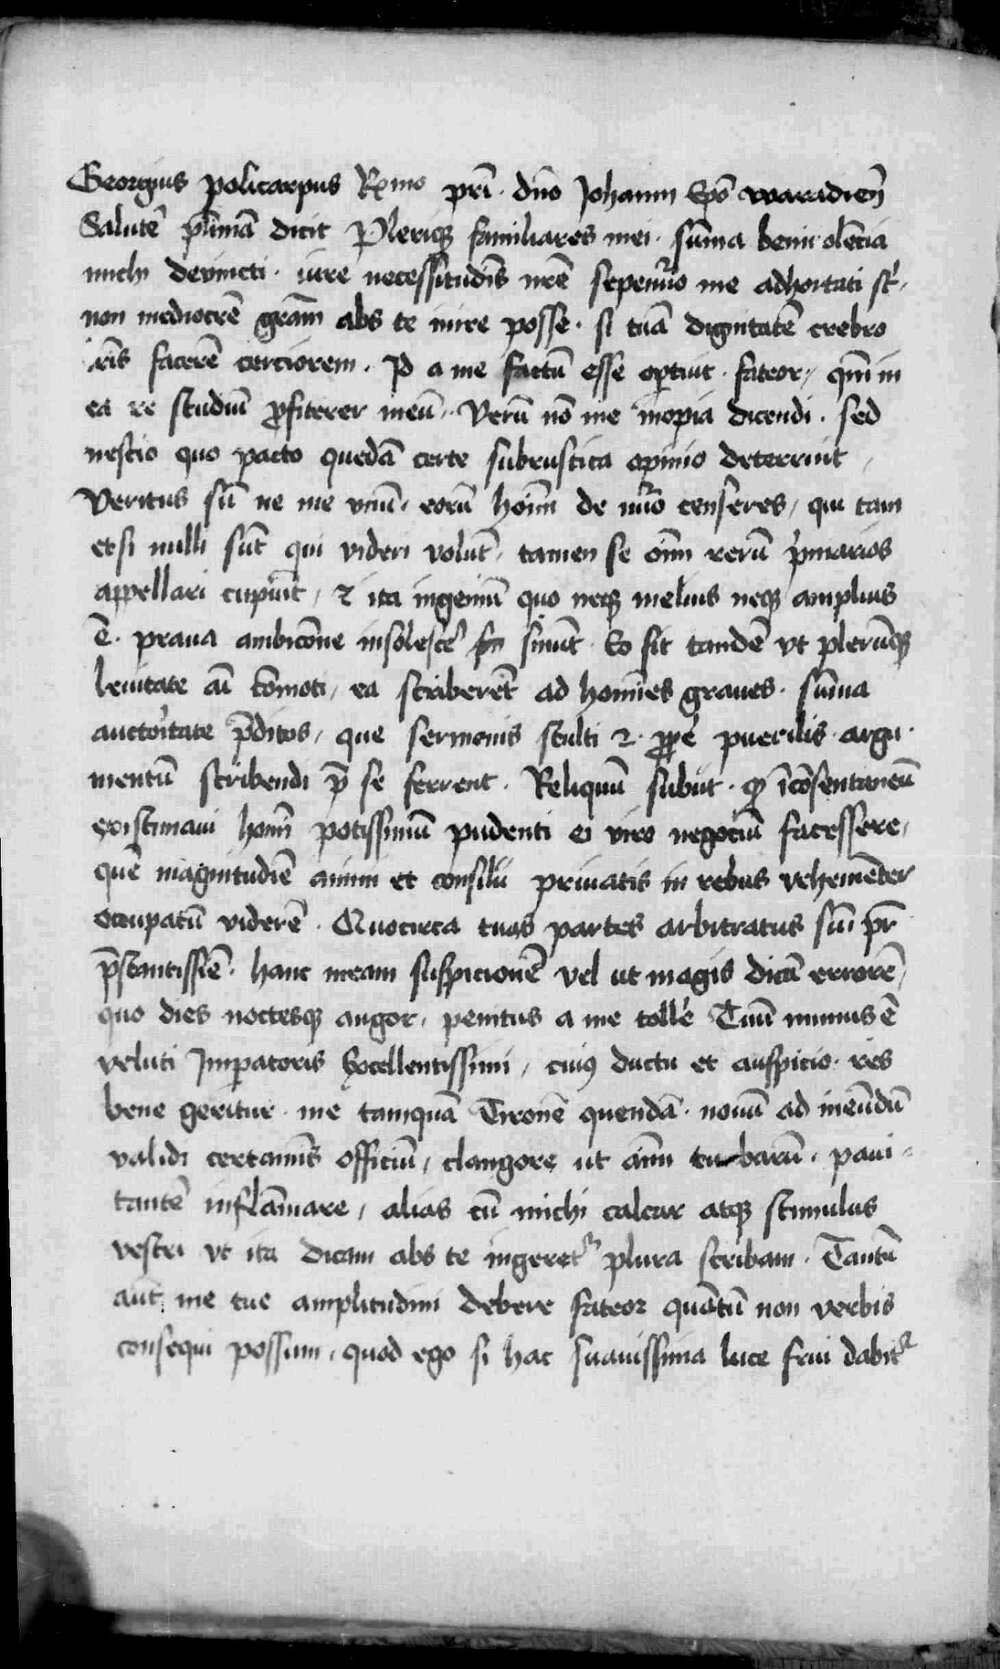 Georgius policarpus Rxmo pri. dno Johanni Epo waradien̄
Salutē plimā dicit Plerique familiares mei. sūma beniuolēcia
michi deuincti. iure necessitudīs nrē sepenūo me adhortati st̄.
non mediocrē gram̄ abs te inire posse. si tuā dignitatē crebro
lris facerē cerciorem. Id a me factū esse optuit. fateor, qm̄ in
ea re studiū ꝓfiterer meū. Verū nō me inopia dicendi. sed
nescio quo pacto quedā certe subrustica opinio deterruit,
Veritus sū ne me vnū. eorū hoīm de nūo censeres, qui tam
etsi nulli sūt qui videri volūt, tamen se oīm rerū pͥmarios
appellari cupiūt, & ita ingeniū quo neqꝫ melius neqꝫ amplius
ē. praua ambicōne insolescē sinūt. Eo fit tandē vt plerūqꝫ
leuitate aī cōmoti, ea scriberēt ad homīes graues. sūma
auctoritate p̄ditos, que sermonis stulti & ꝓpē puerilis argu-
mentū scribendi p̄ se ferrent. Reliquū subiit. ꝙ īcōsentaneū
existimaui homī potissimū pudenti ei viro negociū facessere,
quē magnitudīē animi et consilii priuatis in rebus vehemēter
occupatū viderē. Quocirca tuas partes arbitratus sū pr̄
p̄stantissīē. hanc meam suspicionē vel ut magis dicā errorē,
quo dies noctesqꝫ angor, penitus a me tollē Tuū munus ē
veluti Impatoris Excellentissimi, cuiꝰ ductu et auspicio. res
bene geritur. me tamquā Tironē quendā. nouū ad ineūdū
validi certamīs officiū, clangore ut aīm tubarū. paui-
tantē inflāmare, alias cū michi calcar atqꝫ stimulus
vestri vt ita dicam abs te ingeret᷑ plura scribam. Tantū
aūt me tue amplitudini debere fateor quātū non verbis
consequi possum, quod ego si hac suauissima luce frui dabit᷑